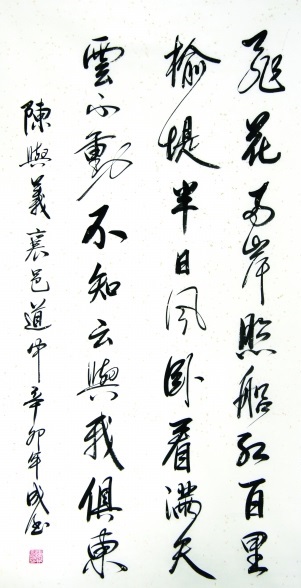 飛花两岸照船红百里
榆堤半日风卧看满天
雲不動不知云與我俱東
陳與義襄邑道中辛卯年成